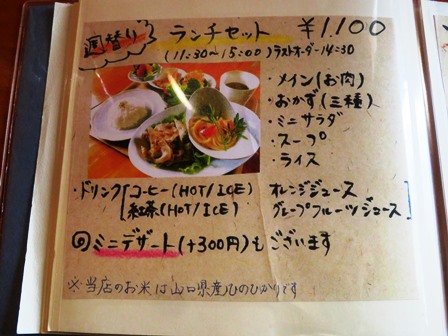 週替り ランチセット ￥1,100
(11:30～15:00) ラストオーダー 14:30
・メイン(お肉)
・おかず(三種)
・ミニサラダ
・スープ
・ライス
・ドリンク[コーヒー(HOT/ICE) オレンジジュース
紅茶(HOT/ICE) グレープフルーツジュース]
◎ミニデザート(+300円)もございます
※当店のお米は山口県産ひのひかりです